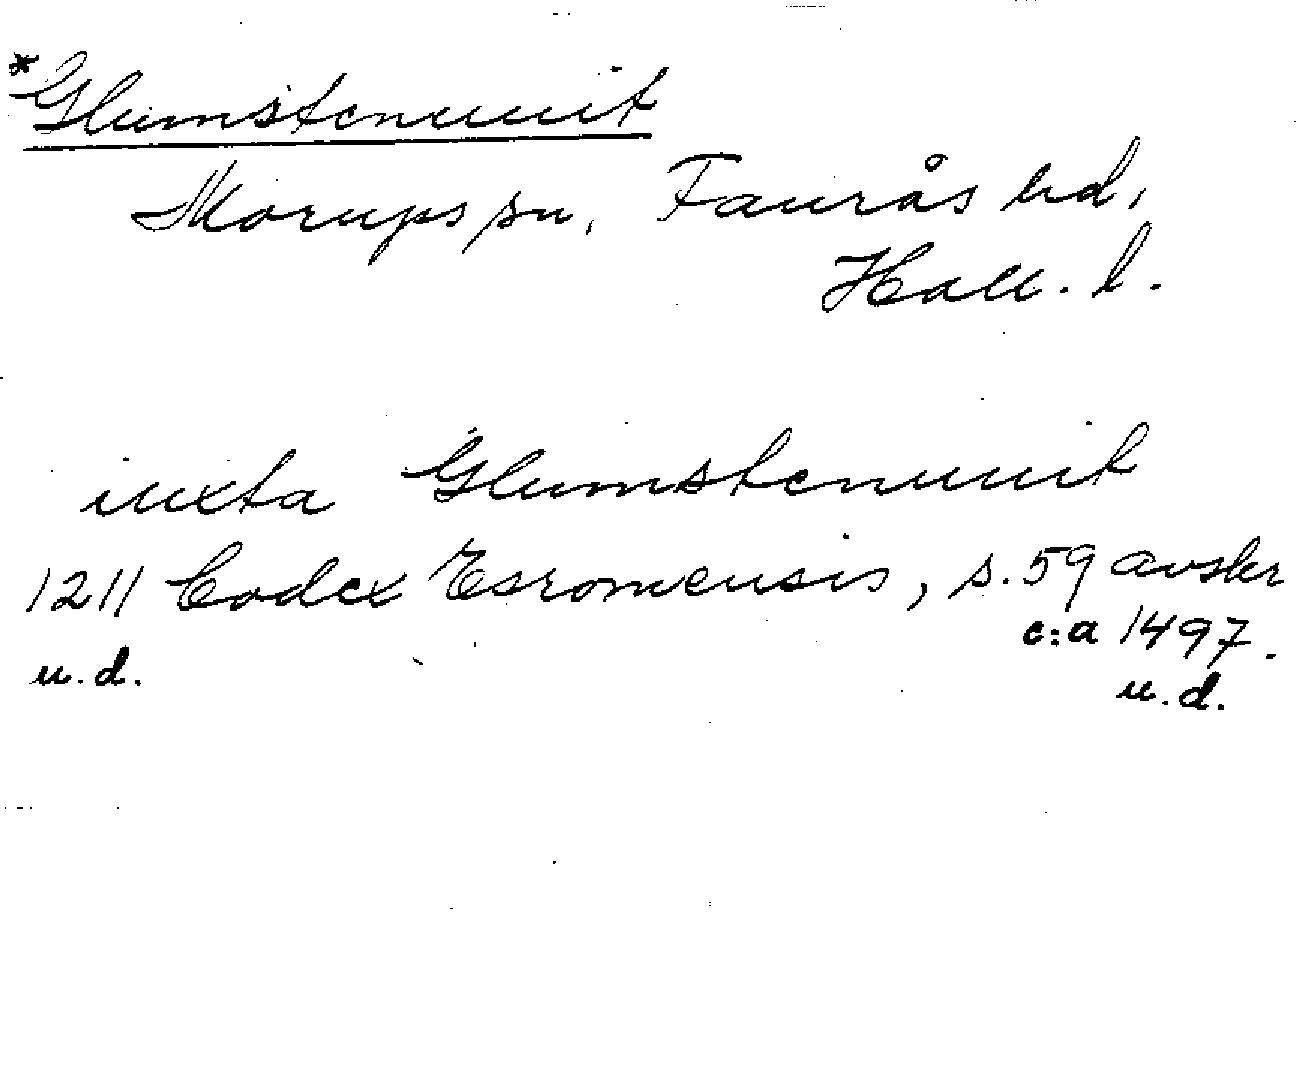 *Glumstenuuit
Morups sn, Faurås hd,
Hall. l.
iuxta Glumstenuuit
1211 Codex Esromensis, s. 59 avskr
c:a 1497.
u.d.
u.d.